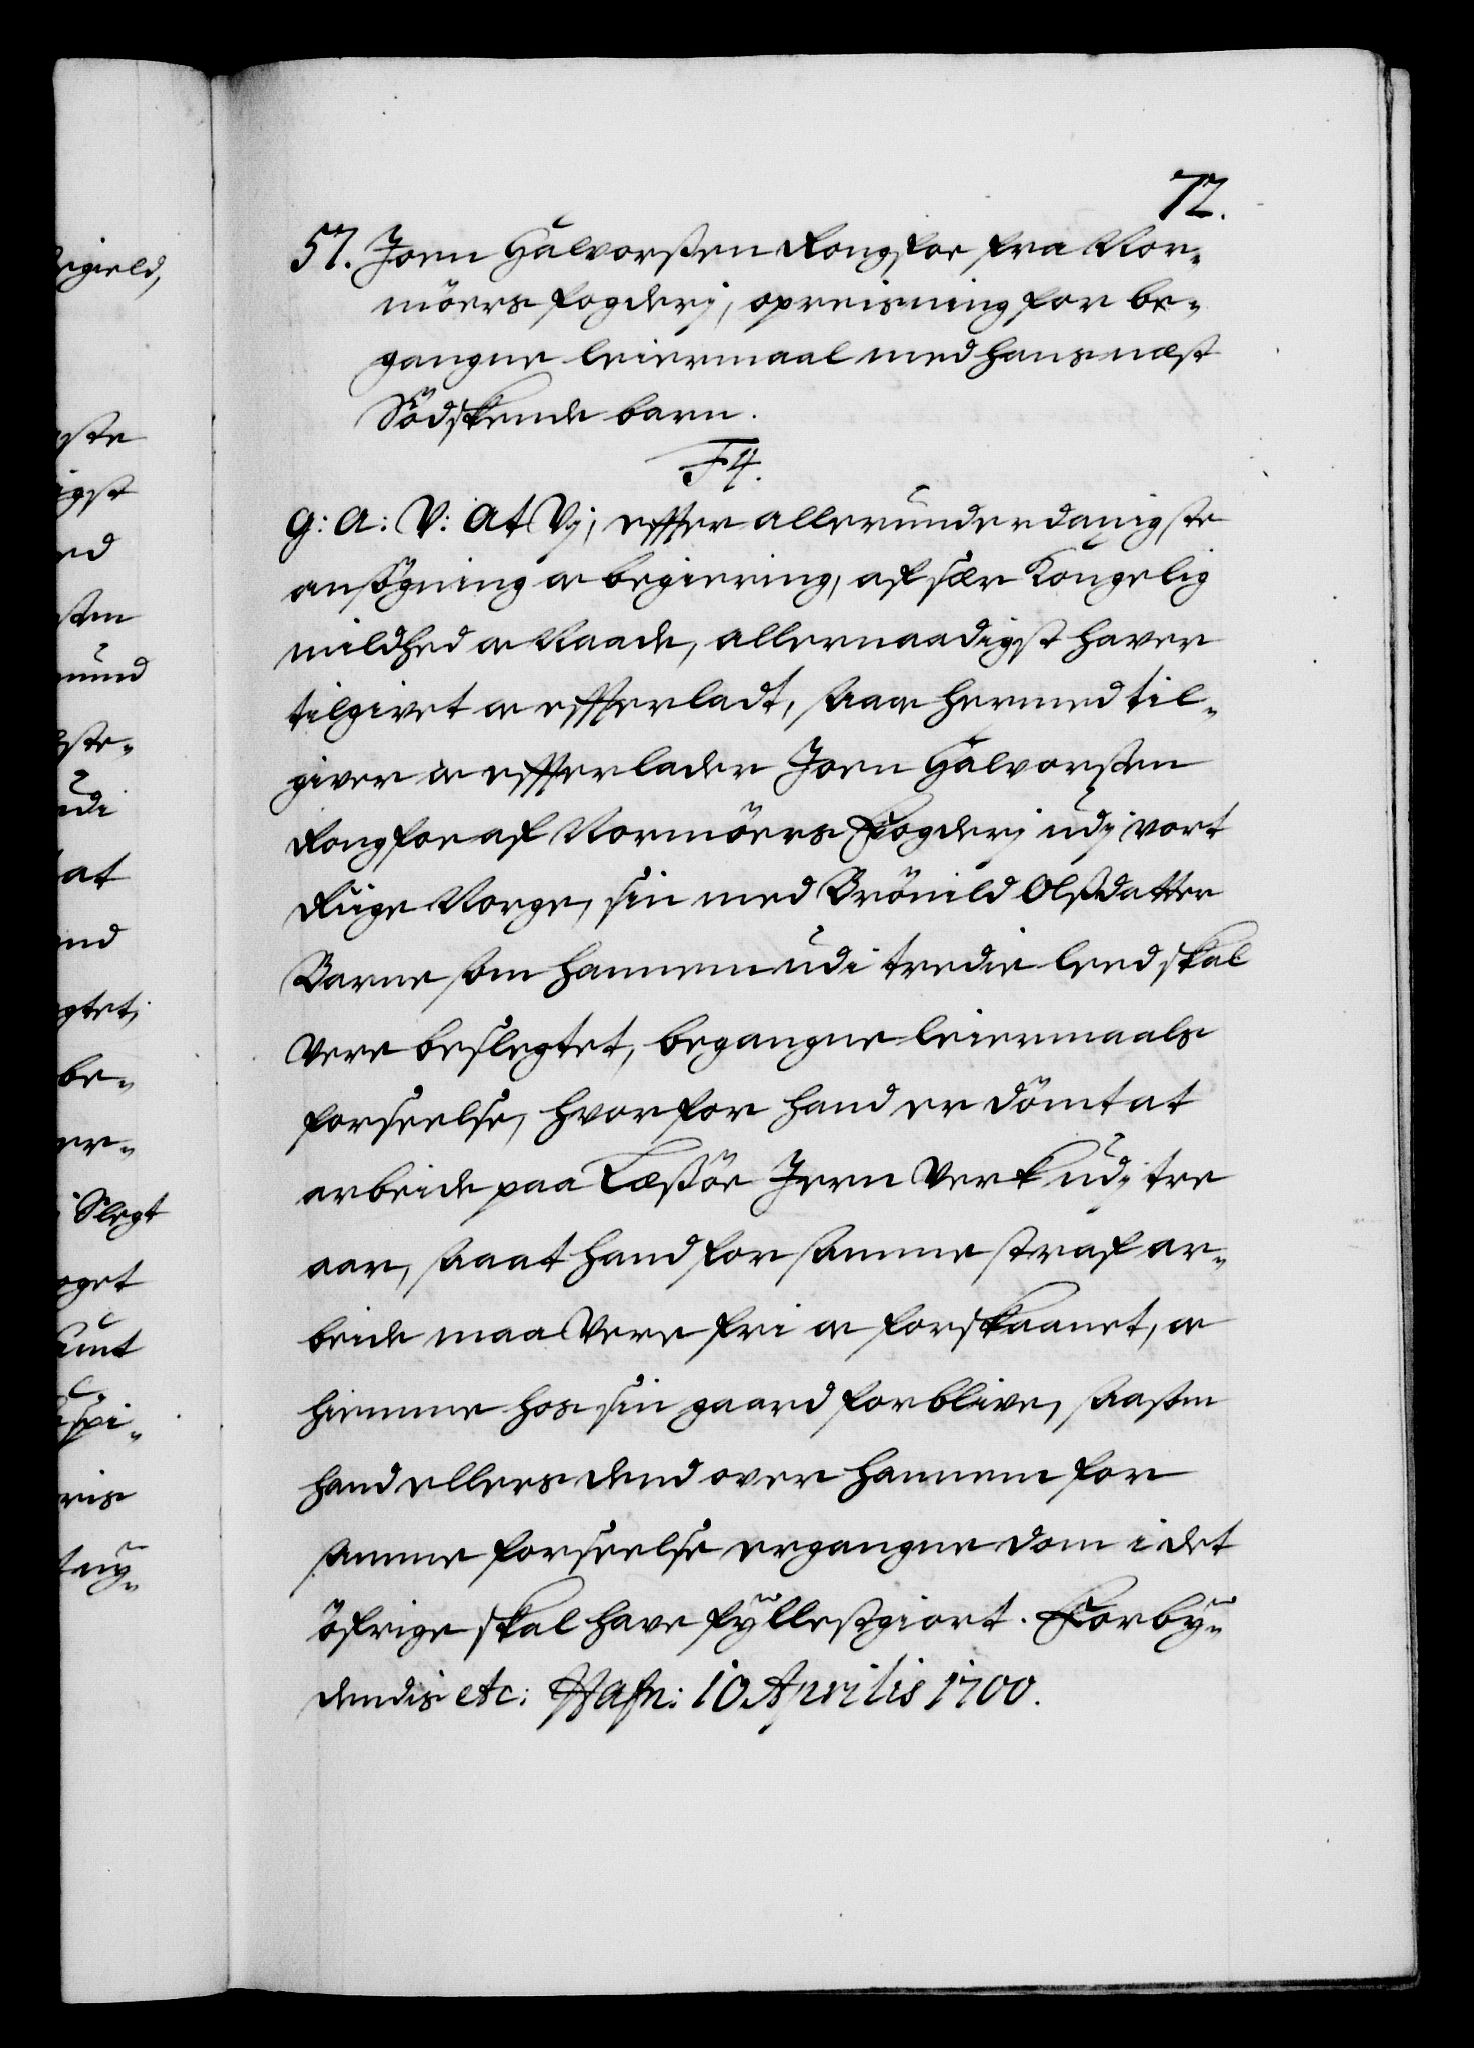 72.
57. Joen Halvorßen Rongfoe fra Nor¬
möers fogderj, opreisning for be¬
gangne leiermaal med hans næst
Södskende barn.
F4.
G: A: V: At Vj, effter allerunderdanigste
ansögning oc begiering, af sær Kongelig
mildhed oc Naade, allernaadigst haver
tilgivet oc effterladt, saa oc hermed til¬
giver oc effterlader Joen Halvorßen
Rongfoe af Normöers Fogderj udj vort
Riige Norge, sin med Brönild Olßdatter
Barne som hannem udi tredie leed skal
Vere beslegtet, begangne leiermaals
forseelse, hvorfor hand er dömt at
arbeide paa Leßöe Jern Verk udj tre
aar, saa at hand for samme straf ar¬
beide maa Vere fri oc forskaanet, oc
hiemme hos sin gaard forblive, saasom
hand ellers dend over hannem for
samme forseelse ergangne dom i det
öfrige skal have fyllestgiort. Forby¬
dendis etc: Hafn: 10 Aprilis 1700.
eigield,
igst
ed
mund
udi
at
end
be¬
er¬
Slegt
oget